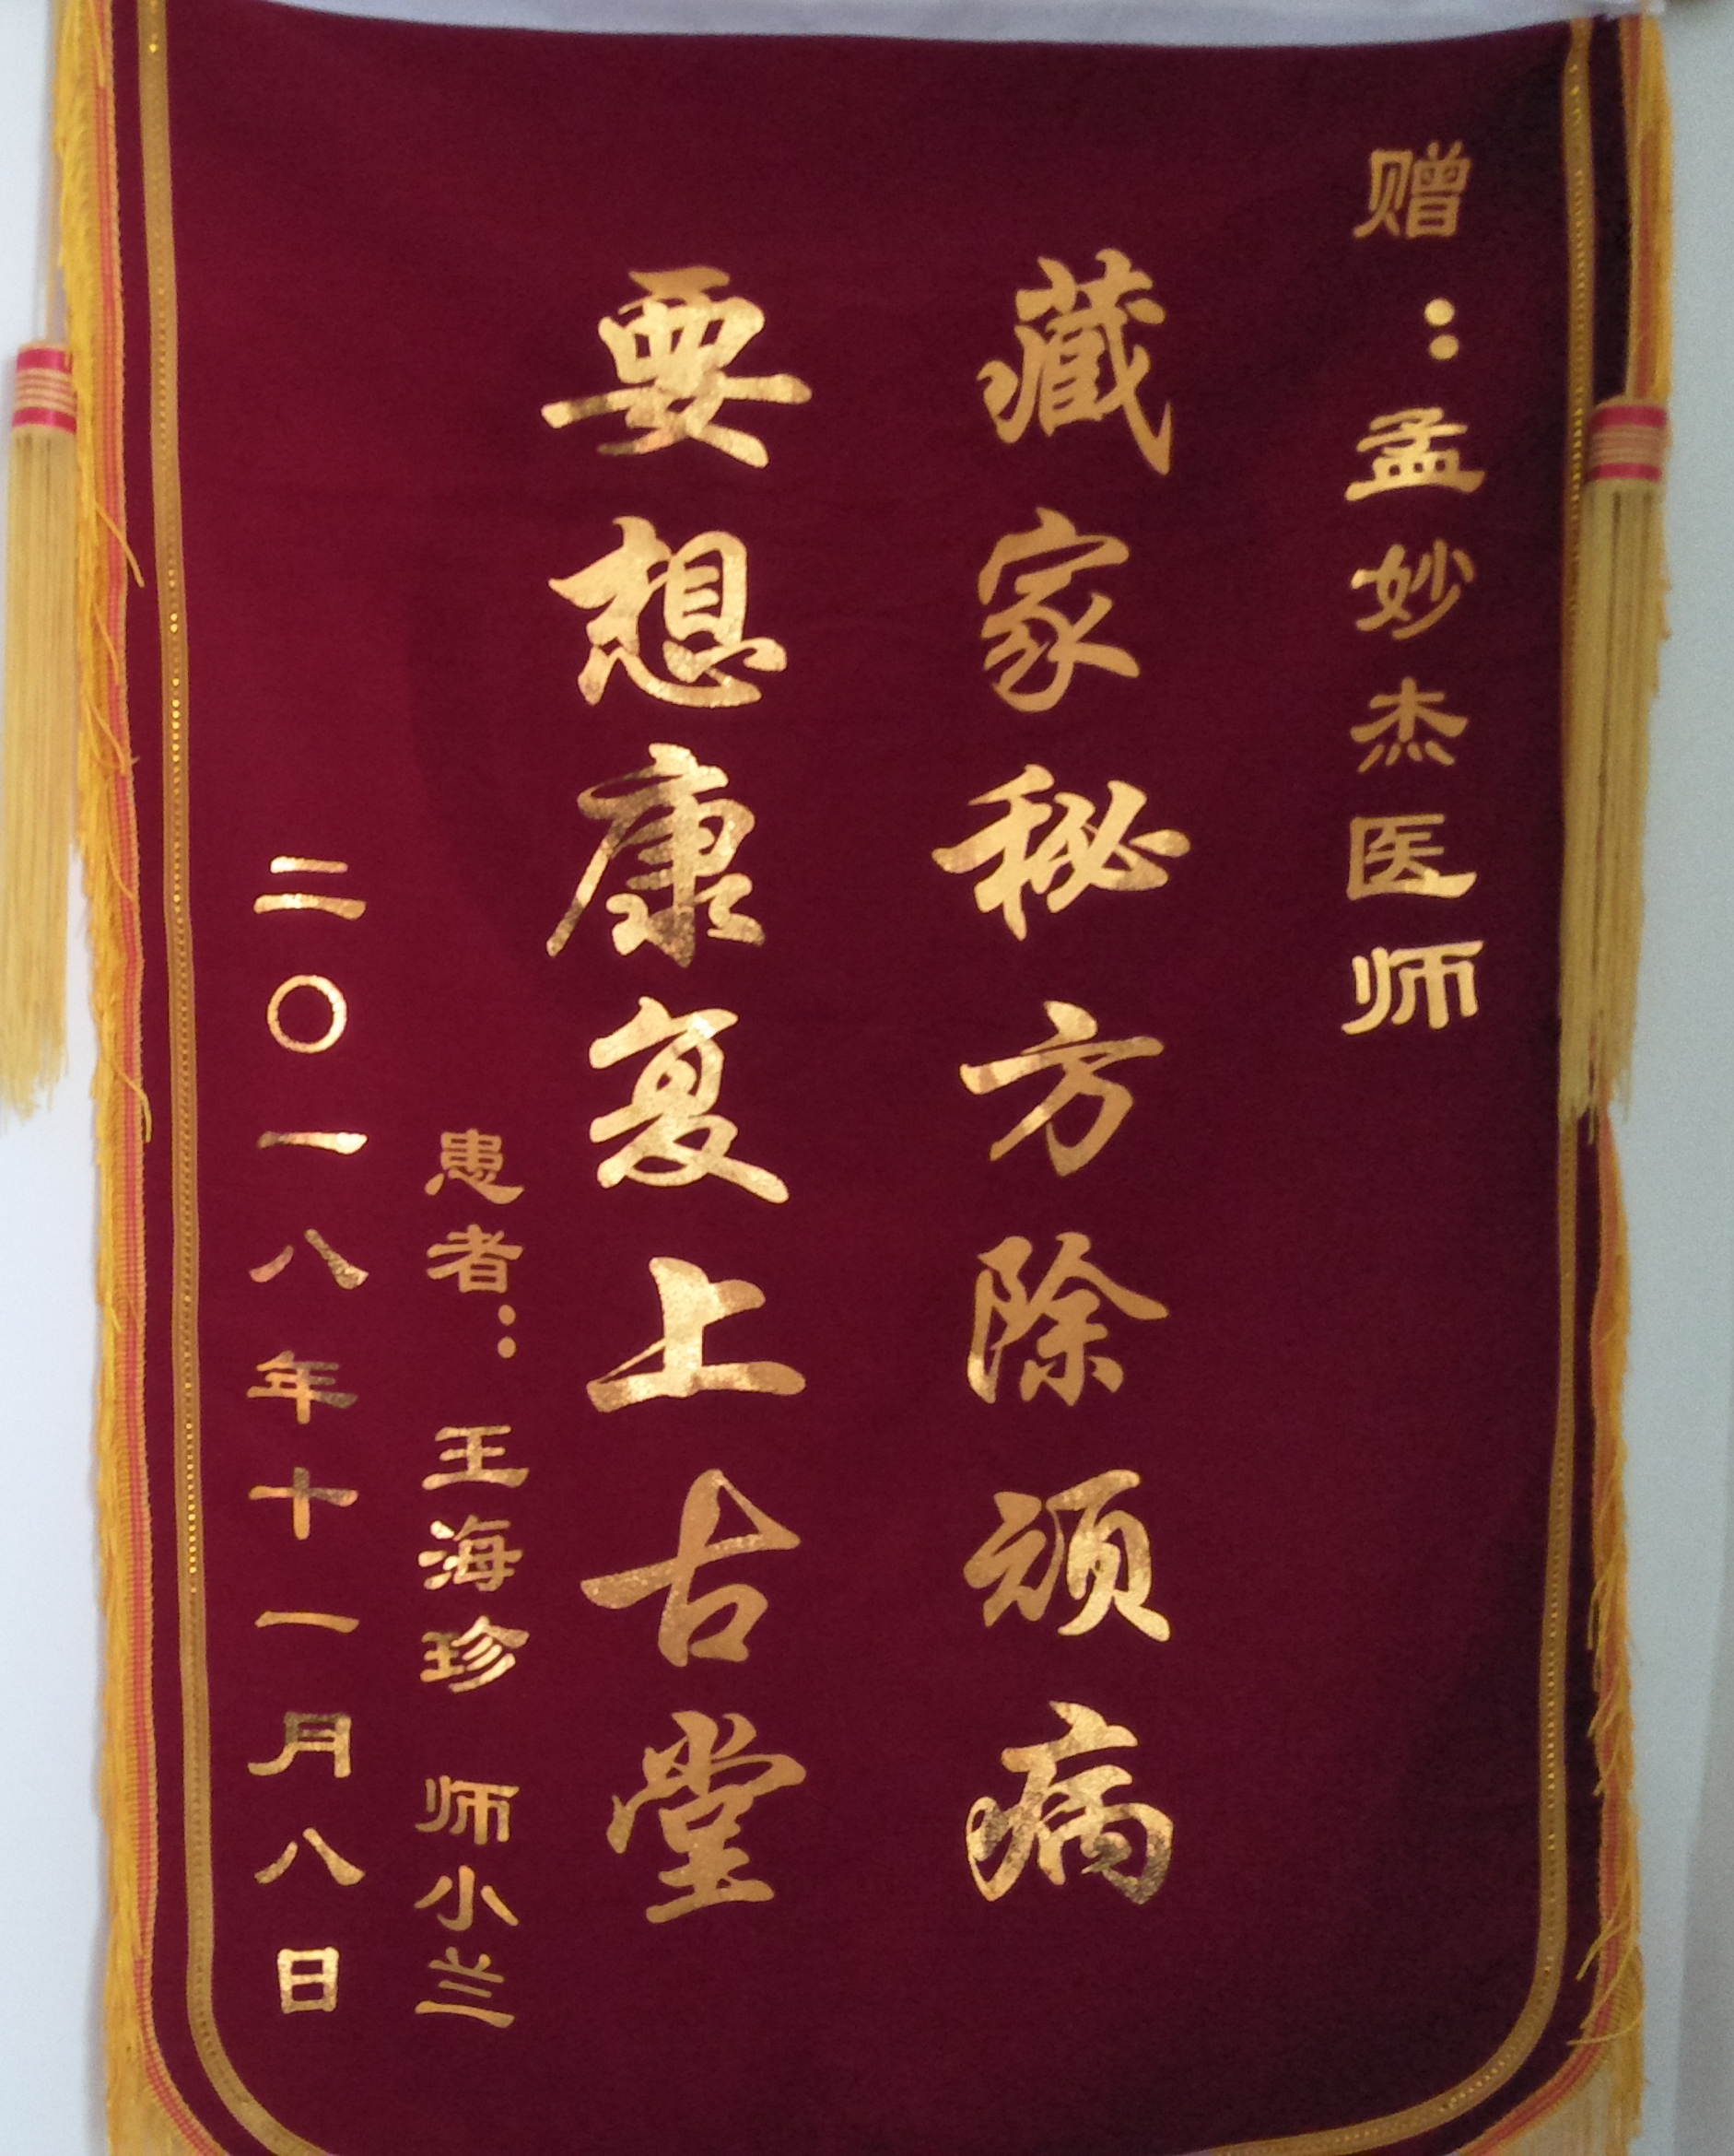 赠：孟妙杰医师
藏家秘方除顽病
要想康复上古堂
患者：王海珍 师小兰
二〇一八年十一月八日